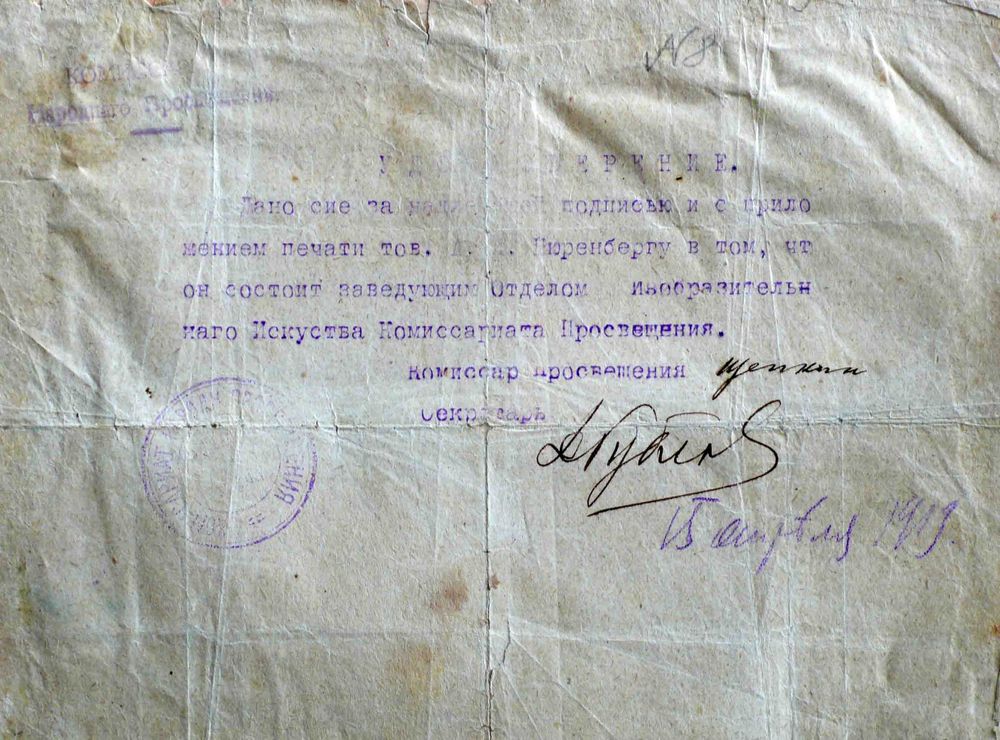 № 8
Народнаго Просвещения.
УДОСТОВЕРЕНИЕ.
Дано сие за надлежащей подписью и с прило
жением печати тов. Нюренбергу в том, чт
он состоит заведующим Отделом изобразительн
наго Искуства Комиссариата Просвещения.
Комиссар Просвещения Щепкин
Секретарь
15 апреля 1919.